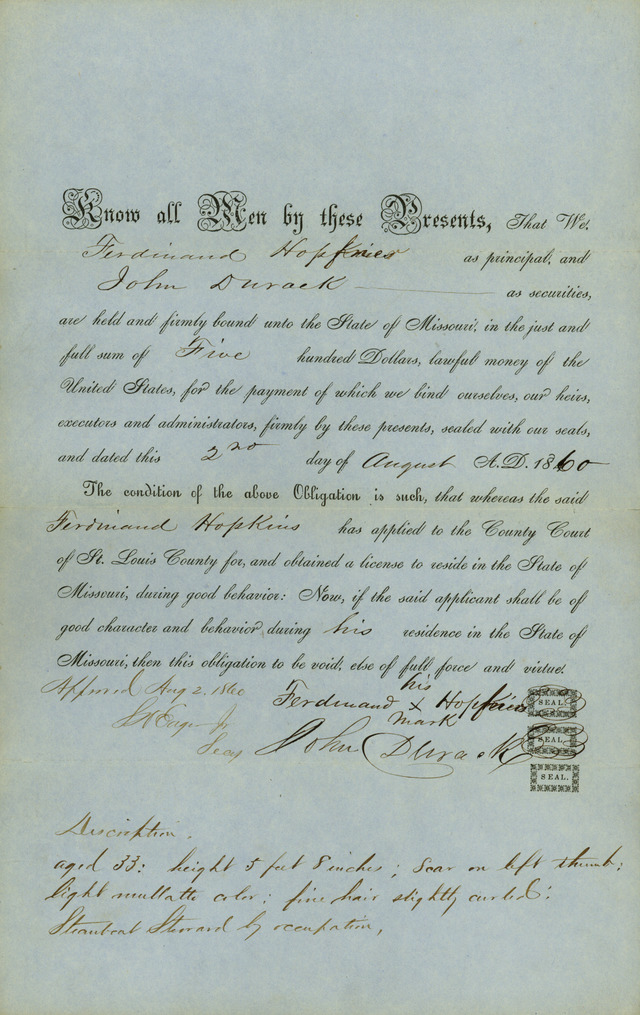 Know all Men by these Presents, That We,
Ferdinand Hopkins as principal, and
John Durack as securities,
are held and firmly bound unto the State of Missouri, in the just and
full sum of Five hundred Dollars, lawful money of the
United States, for the payment of which we bind ourselves, our heirs,
executors and administrators, firmly by these presents, sealed with our seals,
and dated this 2nd day of August A.D. 1860
The condition of the above Obligation is such, that whereas the said
Ferdinand Hopkins has applied to the County Court
of St. Louis County for, and obtained a license to reside in the State of
Missouri, during good behavior: Now, if the said applicant shall be of
good character and behavior during his residence in the State of
Missouri, then this obligation to be void, else of full force and virtue.
Approved Aug 2. 1860
his
Ferdinand X Hopkins SEAL.
mark
John Durack SEAL.
SEAL.
Description.
aged 33: height 5 feet 8 inches; Scar on left thumb:
light mullatto color: fine hair slightly curled:
Steamboat Steward by occupation,